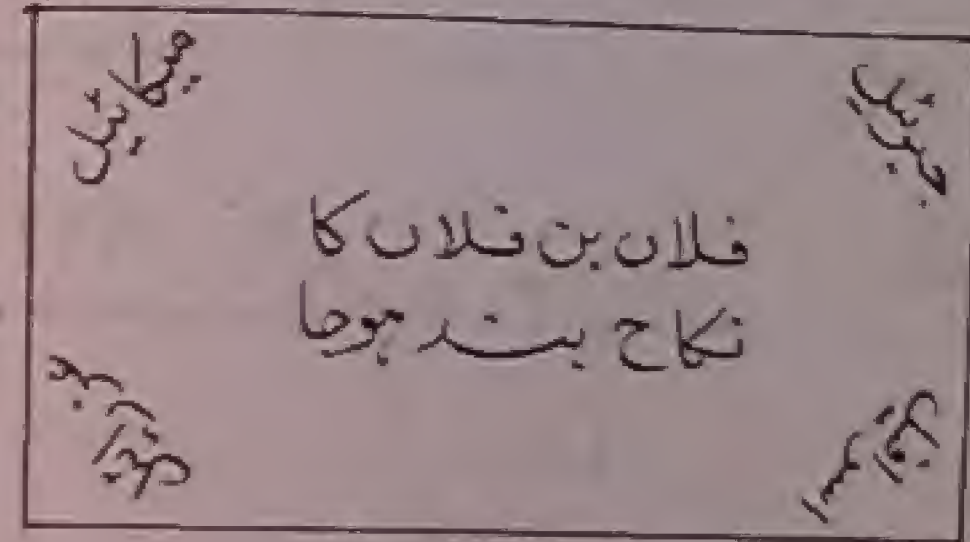 جبرئیل
میکائیل
فلاں بن فلاں کا
نکاح بند ہوجا
اسرافیل
عزرائیل